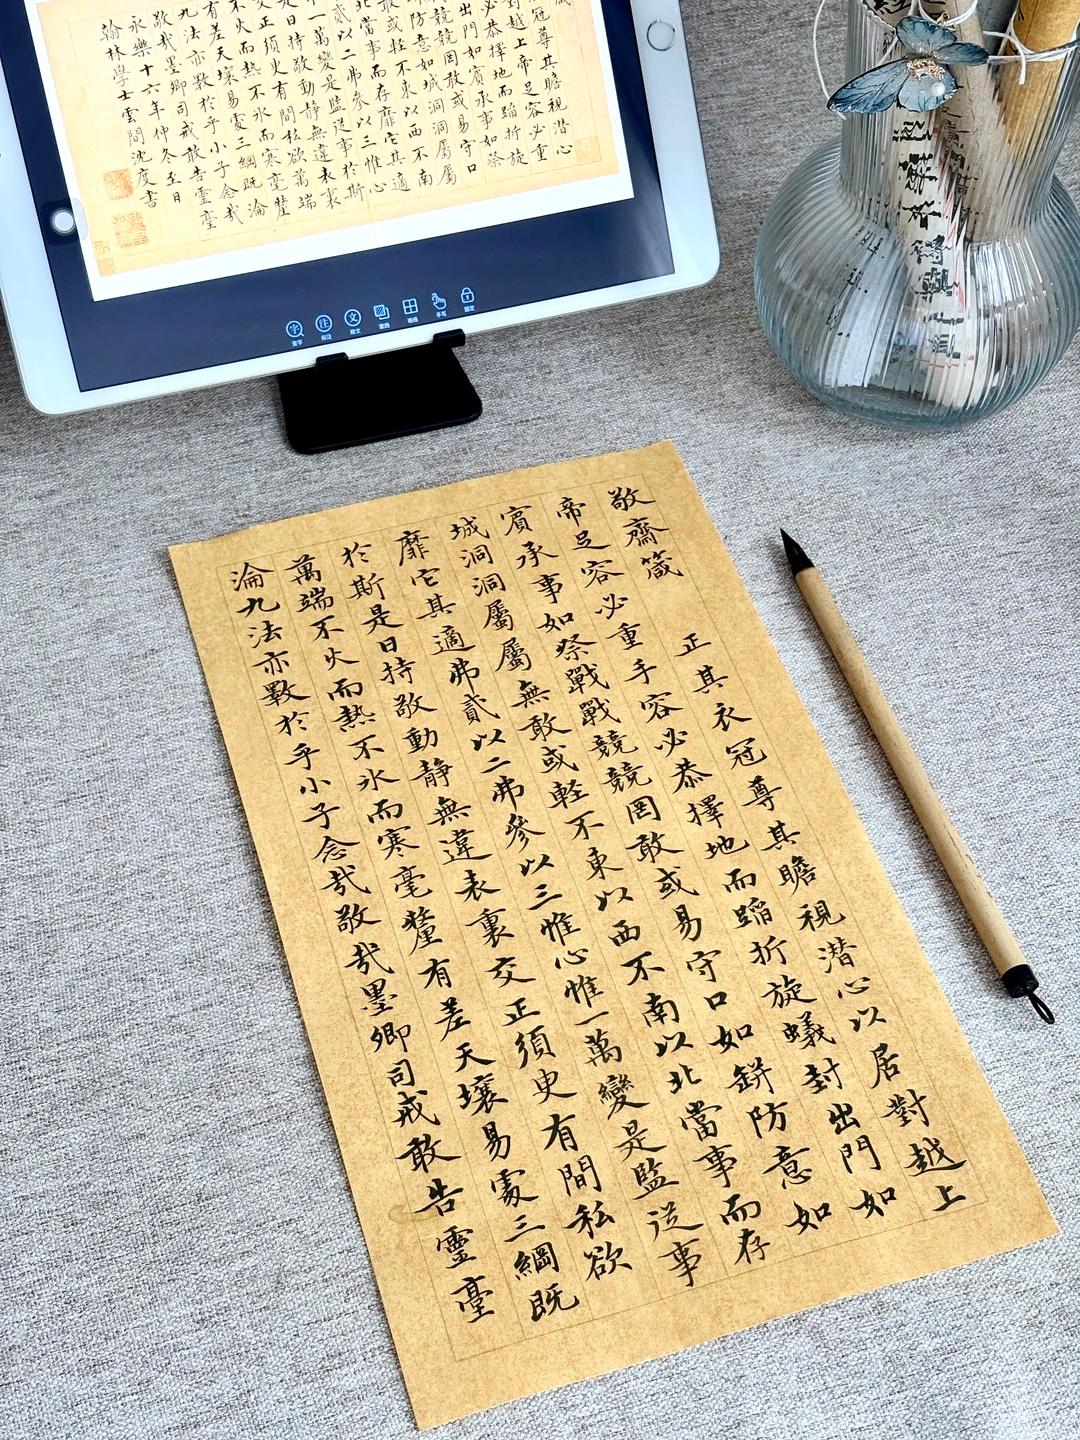 冠尊其瞻視潜心
對越上帝足容必重
必恭擇地而蹈折旋
出門如賓承事如祭
競競罔敢或易守口
防意如城洞洞屬屬
敢或輊不東以西不南
北當事而存靡它其適
貳以二弗參以三惟心
一萬變是監送事於斯
是日持敬動靜無違表裏
交正須臾有間私欲萬端
不火而熱不氷而寒毫釐
有差天壤易處三綱既淪
九法亦斁於乎小子念哉
敬哉墨卿司戒敢告靈臺
永樂十六年仲冬至日
翰林學士雲間沈度書
字 注 文
查字 标注 释文 格线 手写 固定
敬齋箴 正其衣冠尊其瞻視潜心以居對越上
帝足容必重手容必恭擇地而蹈折旋蟻封出門如
賓承事如祭戰戰競競罔敢或易守口如缾防意如
城洞洞屬屬無敢或輊不東以西不南以北當事而存
靡它其適弗貳以二弗參以三惟心惟一萬變是監送事
於斯是日持敬動静無違表裏交正須臾有間私欲
萬端不火而熱不氷而寒毫釐有差天壤易處三綱既
淪九法亦斁於乎小子念哉敬哉墨卿司戒敢告靈臺